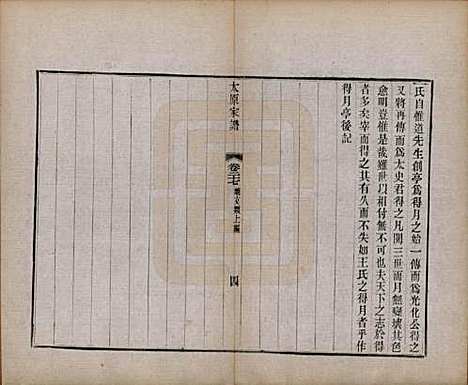 氏自惟道先生創亭爲得月之始一傳而爲光化公得之
又將再傳而爲太史君得之凡閱三世而月無變壞其色
愈明豈惟是哉雖世以相付無不可也夫天下之志於得
者多矣幸而得之其有久而不失如王氏之得月者乎作
得月亭後記
太原家譜
卷二十七
上編
四